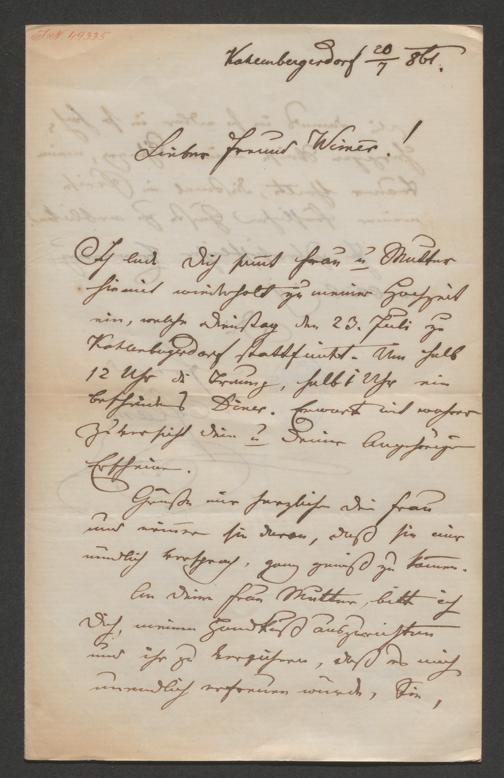 I.N. 49335
Kahlenbergerdorf 20/7 861.
Lieber Freund Wimer!
Ich lade Dich sammt Frau u Mutter
hiemit wiederholt zu meiner Hochzeit
ein, welche Dienstag den 23. Juli zu
Kahlenbergerdorf stattfindet. Um halb
12 Uhr die Trauung, halb 1 Uhr ein
bescheidenes Diner. Erwarte mit wahrer
Zuversicht Dein u Deiner Angehörigen
Erscheinen.
Grüße mir herzlichst Deine Frau
und erinnere sie daran, daß sie mir
mündlich versprach, ganz gewiß zu kommen.
An Deine Frau Mutter, bitte ich
Dich, meinen Handkuß auszurichten
und ihr zu versichern, daß es mich
unendlich erfreuen würde, Sie,